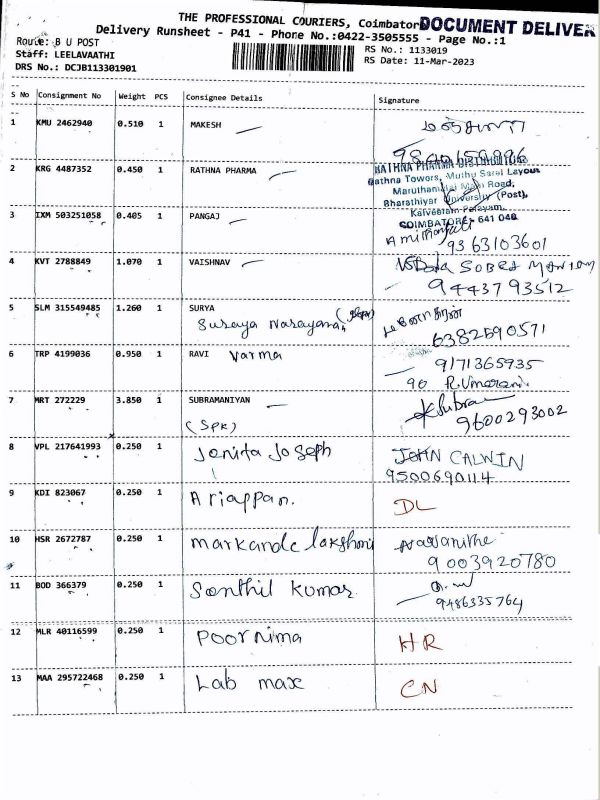 THE PROFESSIONAL COURIERS, Coimbatore
DOCUMENT DELIVER
Delivery Runsheet - P41 - Phone No.:0422-3505555 - Page No.:1
Route: B U POST
RS No.: 1133019
Staff: LEELAVAATHI
RS Date: 11-Mar-2023
DRS No.: DCJB113301901
S No Consignment No Weight PCS Consignee Details Signature
1 KMU 2462940 0.510 1 MAKESH
2 KRG 4487352 0.450 1 RATHNA PHARMA
RATHNA PHARMA DISTRIBUTORS
Rathna Towers, Muthu Saral Layout
Road,
Bharathiyar University (Post),
COIMBATORE - 641 046
3 IXM 503251058 0.405 1 PANGAJ
9363103601
4 KVT 2788849 1.070 1 VAISHNAV
9443793512
5 SLM 315549485 1.260 1 SURYA
Suraya Narayanan மனோகரன்
6382590571
6 TRP 4199036 0.950 1 RAVI Varma 9171365935
7 MRT 272229 3.850 1 SUBRAMANIYAN
(SPK) 9600293002
8 VPL 217641993 0.250 1 Jenita Joseph JOHN CALWIN
9500690114
9 KDI 823067 0.250 1 Ariappan. DL
10 HSR 2672787 0.250 1 Markande lakshmi
9003920780
11 BOD 366379 0.250 1 Senthil Kumar
9486335764
12 MLR 40116599 0.250 1 Poornima HR
13 MAA 295722468 0.250 1 Lab max CN